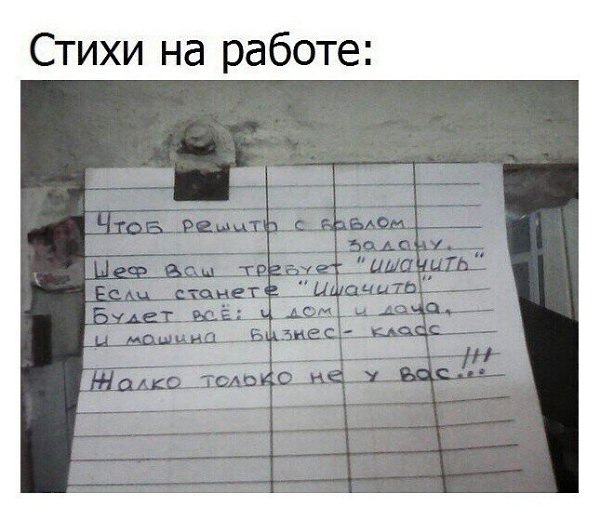 Стихи на работе:
Чтоб решить с баблом
задачу,
Шеф Ваш требует "ишачить"
Если станете "Ишачить"
Будет всё: и дом и дача,
и машина бизнес-класс
Жалко только не у вас...!!!